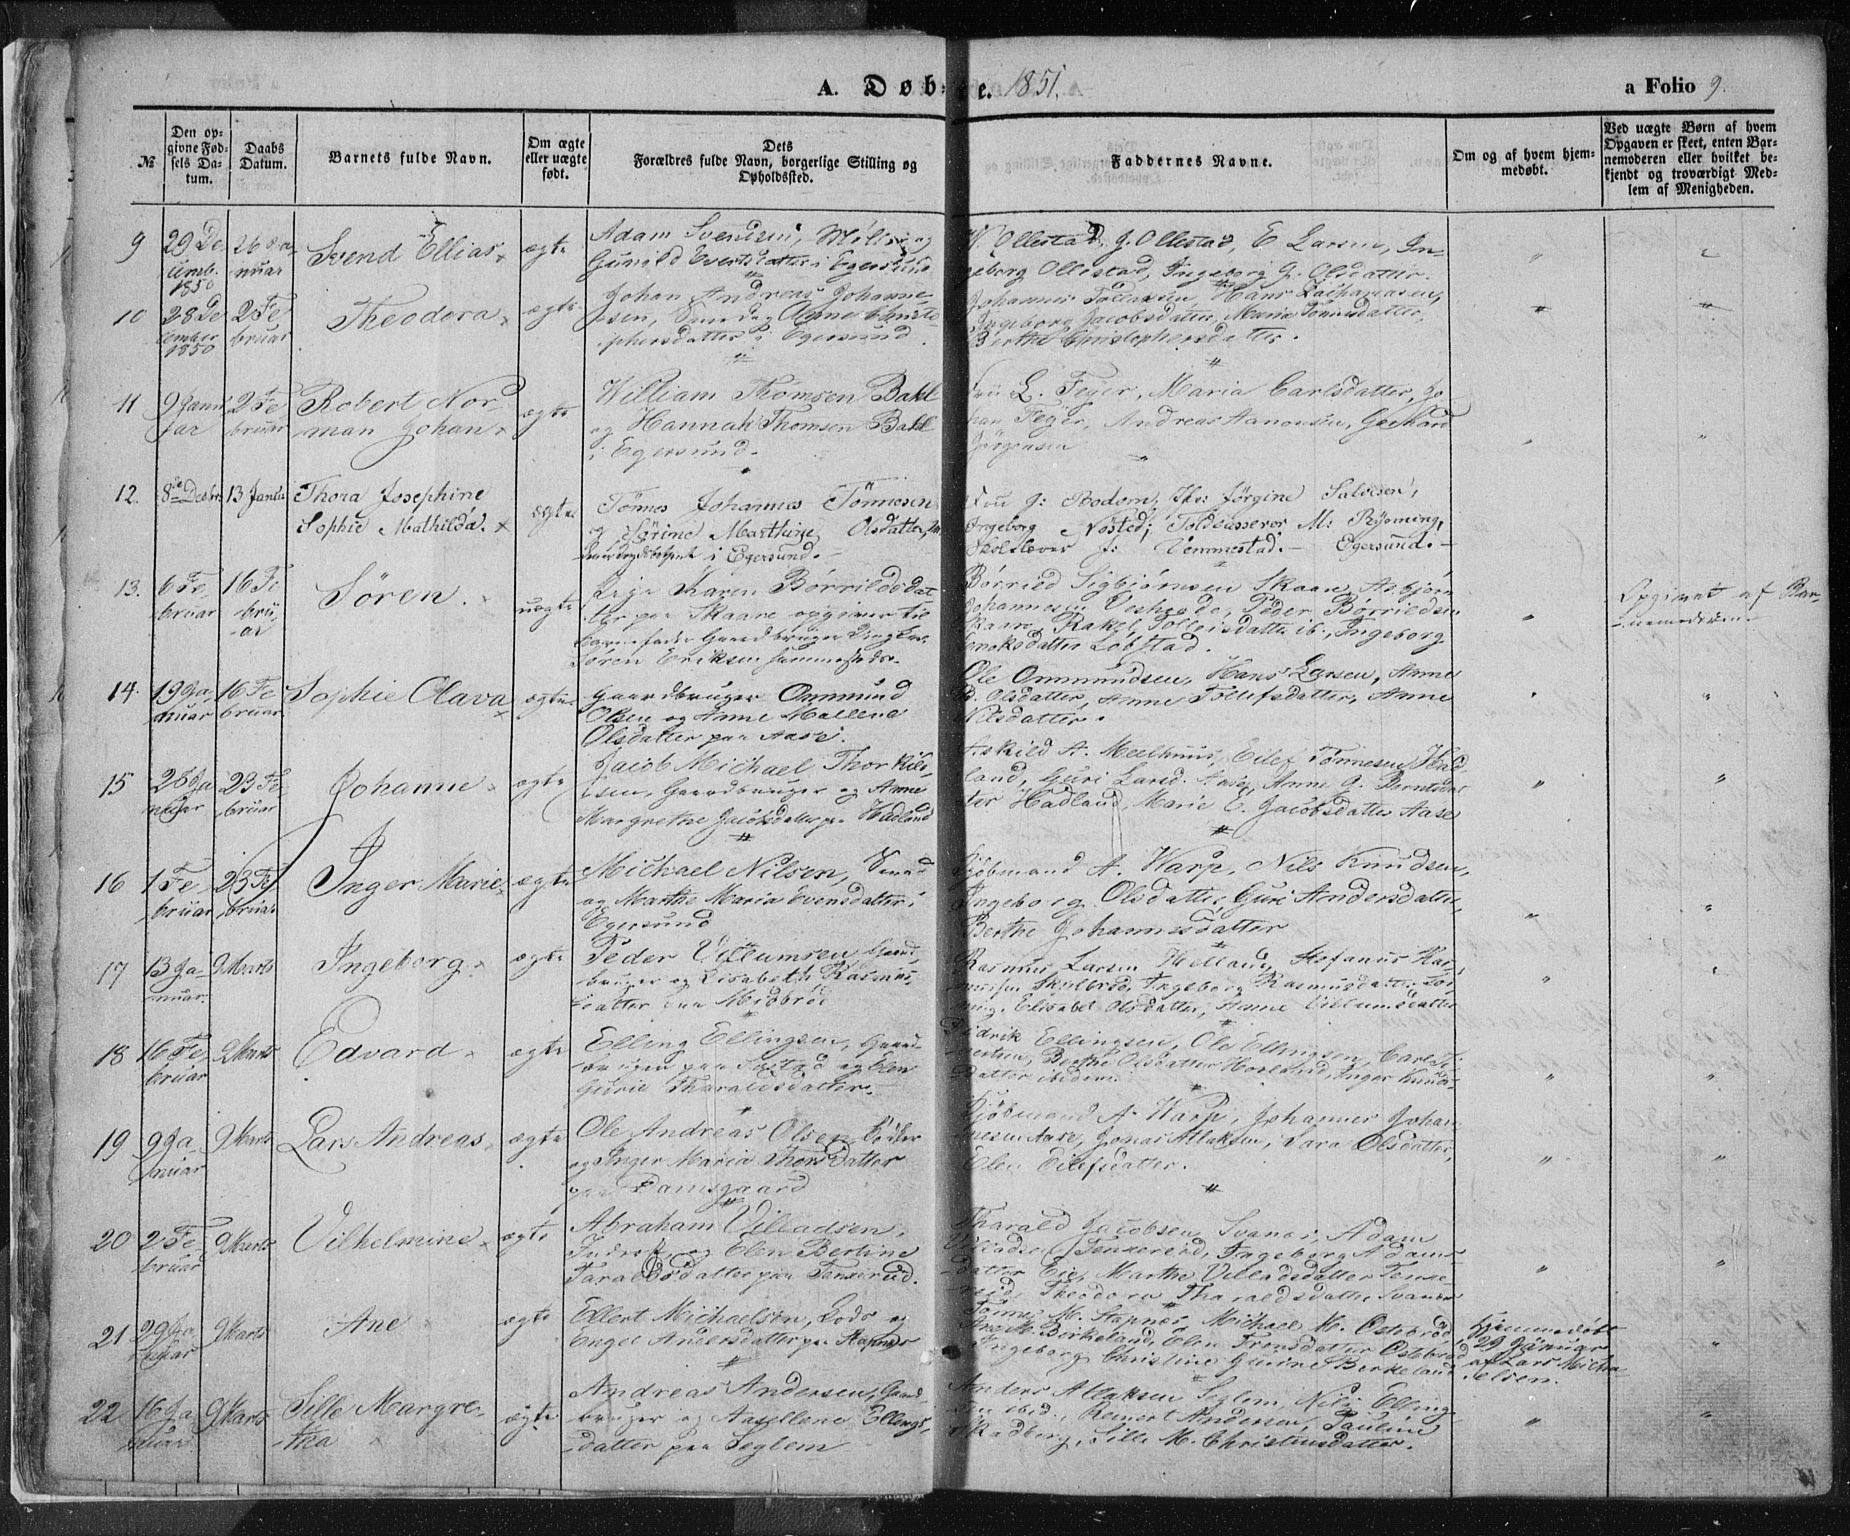 A. Døbte. 1851.
a Folio 9.
№
Den op-
givne Fød-
sels Da-
tum.
Daabs
Datum.
Barnets fulde Navn.
Om ægte
eller uægte
født.
Dets
Forældres fulde Navn, borgerlige Stilling og
Opholdssted.
Faddernes Navne.
Om og af hvem hjem-
medøbt.
Ved uægte Børn af hvem
Opgaven er skeet, enten Bar-
nemoderen eller hvilket be-
kjendt og troværdigt Med-
lem af Menigheden.
9
29 De
cemb.
1850
26 Ja-
nuar
Svend Ellias
ægte
Adam Svendsen,
Gunild Evertsdatter i Egersund
Ollestad, J. Ollestad, E Larsen, In-
geborg Ollestad, Ingeborg G. Olsdatter.
10
28 De
cember
1850
2 Fe
bruar
Theodora
ægte
Johan Andreas Johanne-
sen, Smed og Anne Christo-
phersdatter i Egersund
Johannes Tollefsen, Hans Zachariasen,
Ingeborg Jacobsdatter, Maria Tönnisdatter,
Berthe Christophersdatter.
11
9 Janu
ar
2 Fe
bruar
Robert Nor-
man Johan
ægte
William Thomsen Bakl
og Hannah Thomsen Bakl
i Egersund.
L. Feyer, Maria Carlsdatter, Jo
han Feyer, Andreas Aanonsen, Gerhard
Jörgensen
12.
8de Decbr
13 Januar
Thora Josephine
Sophie Mathilda.
ægte
Tönnes Johannes Tönnesen
og Sörine Marthine Olsdatter,
i Egersund.
J: Rodom, Jörgine Salvesen,
Ingeborg Nösted; Toldcasserer M: Rysming,
Skolelærer J: Vemmestad. - Egersund. -
13.
6 Fe
bruar
16 Fe
bru
ar
Sören.
uægte
Pige Karen Börrildsdat-
ter paa Skaare opgiver til
Barnefader Gaardbruger
Sören Eriksen sammesteds.
Börrild Sigbjörnsen Skaare, Asbjörn
Johannesen Veshovde, Peder Börrildsen
Skaare, Rakel Tolleisdatter ib., Ingeborg
Enoksdatter Löbstad.
Opgivet af Bar-
nemoderen.
14.
19 Ja
nuar
16 Fe
bruar
Sophie Olava
ægte
Gaardbruger Ommund
Olsen og Anne Mallene
Olsdatter paa Aase.
Ole Ommundsen, Hans Larsen, Anne
B. Olsdatter, Anne Tollefsdatter, Anne
Nilsdatter.
15
26 Ja
nuar
23 Fe
bruar
Johanne
ægte
Jacob Michael Thorkild-
sen, Gaardbruger og Anne
Margrethe Jacobsdatter paa Hadland
Askild A. Meelhuus, Eilef Tönnesen Had
land, Guri Larsd. Aase, Anne G. Berntsdat
ter Hadland, Marie E. Jacobsdatter Aase
16
1 Fe
bruar
23 Fe
bruar
Inger Marie
ægte
Michael Nilsen, Smed
og Marthe Maria Evensdatter i
Egersund
Kjöbmand A. Warp, Nils Knudsen,
Ingeborg Olsdatter, Guri Andersdatter,
Berthe Johannesdatter
17
13 Ja-
nuar
9 Marts
Ingeborg
ægte
Peder Villumsen, Gaard-
bruger og Lisabeth Rasmus-
datter paa Midbröe
Rasmus Larsen Helland, Stefanus Ras-
mussen Skulbröd, Ingeborg Rasmusdatter
Elisabet Olsdatter, Anne Villumsdatter
18
16 Fe
bruar
9 Marts
Edvard
ægte
Elling Ellingsen, Gaard
bruger paa og Elen
Gurie Tharaldsdatter.
Didrik Ellingsen, Ole Ellingsen, Carl
Berthe Olsdatter Inger Knuds-
datter ibidem.
19
9 Ja
nuar
9 Marts
Lars Andreas
ægte
Ole Andreas Olsen, Bödker
og Inger Maria Thorsdatter
paa Damsgaard
Kjöbmand A. Warp, Johannes Johan
nesen Aase, Jonas Atlaksen, Sara Olsdatter,
Elen Eilefsdatter.
20
2 Fe
bruar
9 Marts
Vilhelmine
ægte
Abraham Villadsen,
Inderst, og Elen Bertine
Taraldsdatter paa Tenxerud.
Tharald Jacobsen Svanes, Adam
Villadsen Tenxeröd, Ingeborg Adams-
datter Eie, Marthe Villadsdatter Tenxe-
röd, Theodora Tharaldsdatter Svanes
21
29 Ja
nuar
9 Marts
Ane
ægte
Ellert Michaelsen, Lods og
Engel Andersdatter paa Stapnes
Tönnes M. Stapnes, Michael M. Ostebröd,
Birkeland, Elen Tronsdatter Ostebröd
Ingeborg Christine Gurine Berkeland
Hjemmedöbt
29 Januar
af Lars Micha
elsen.
22
16 Ja
nuar
9 Marts
Sille Margre-
tha
ægte
Andreas Andersen, Gaard
bruger og Axellene Ellengs-
datter paa Seglem
Anders Atlaksen Seglem, Nils Elling
sen ibid., Reinert Andersen, Pauline
Skadberg, Sille M. Christensdatter.